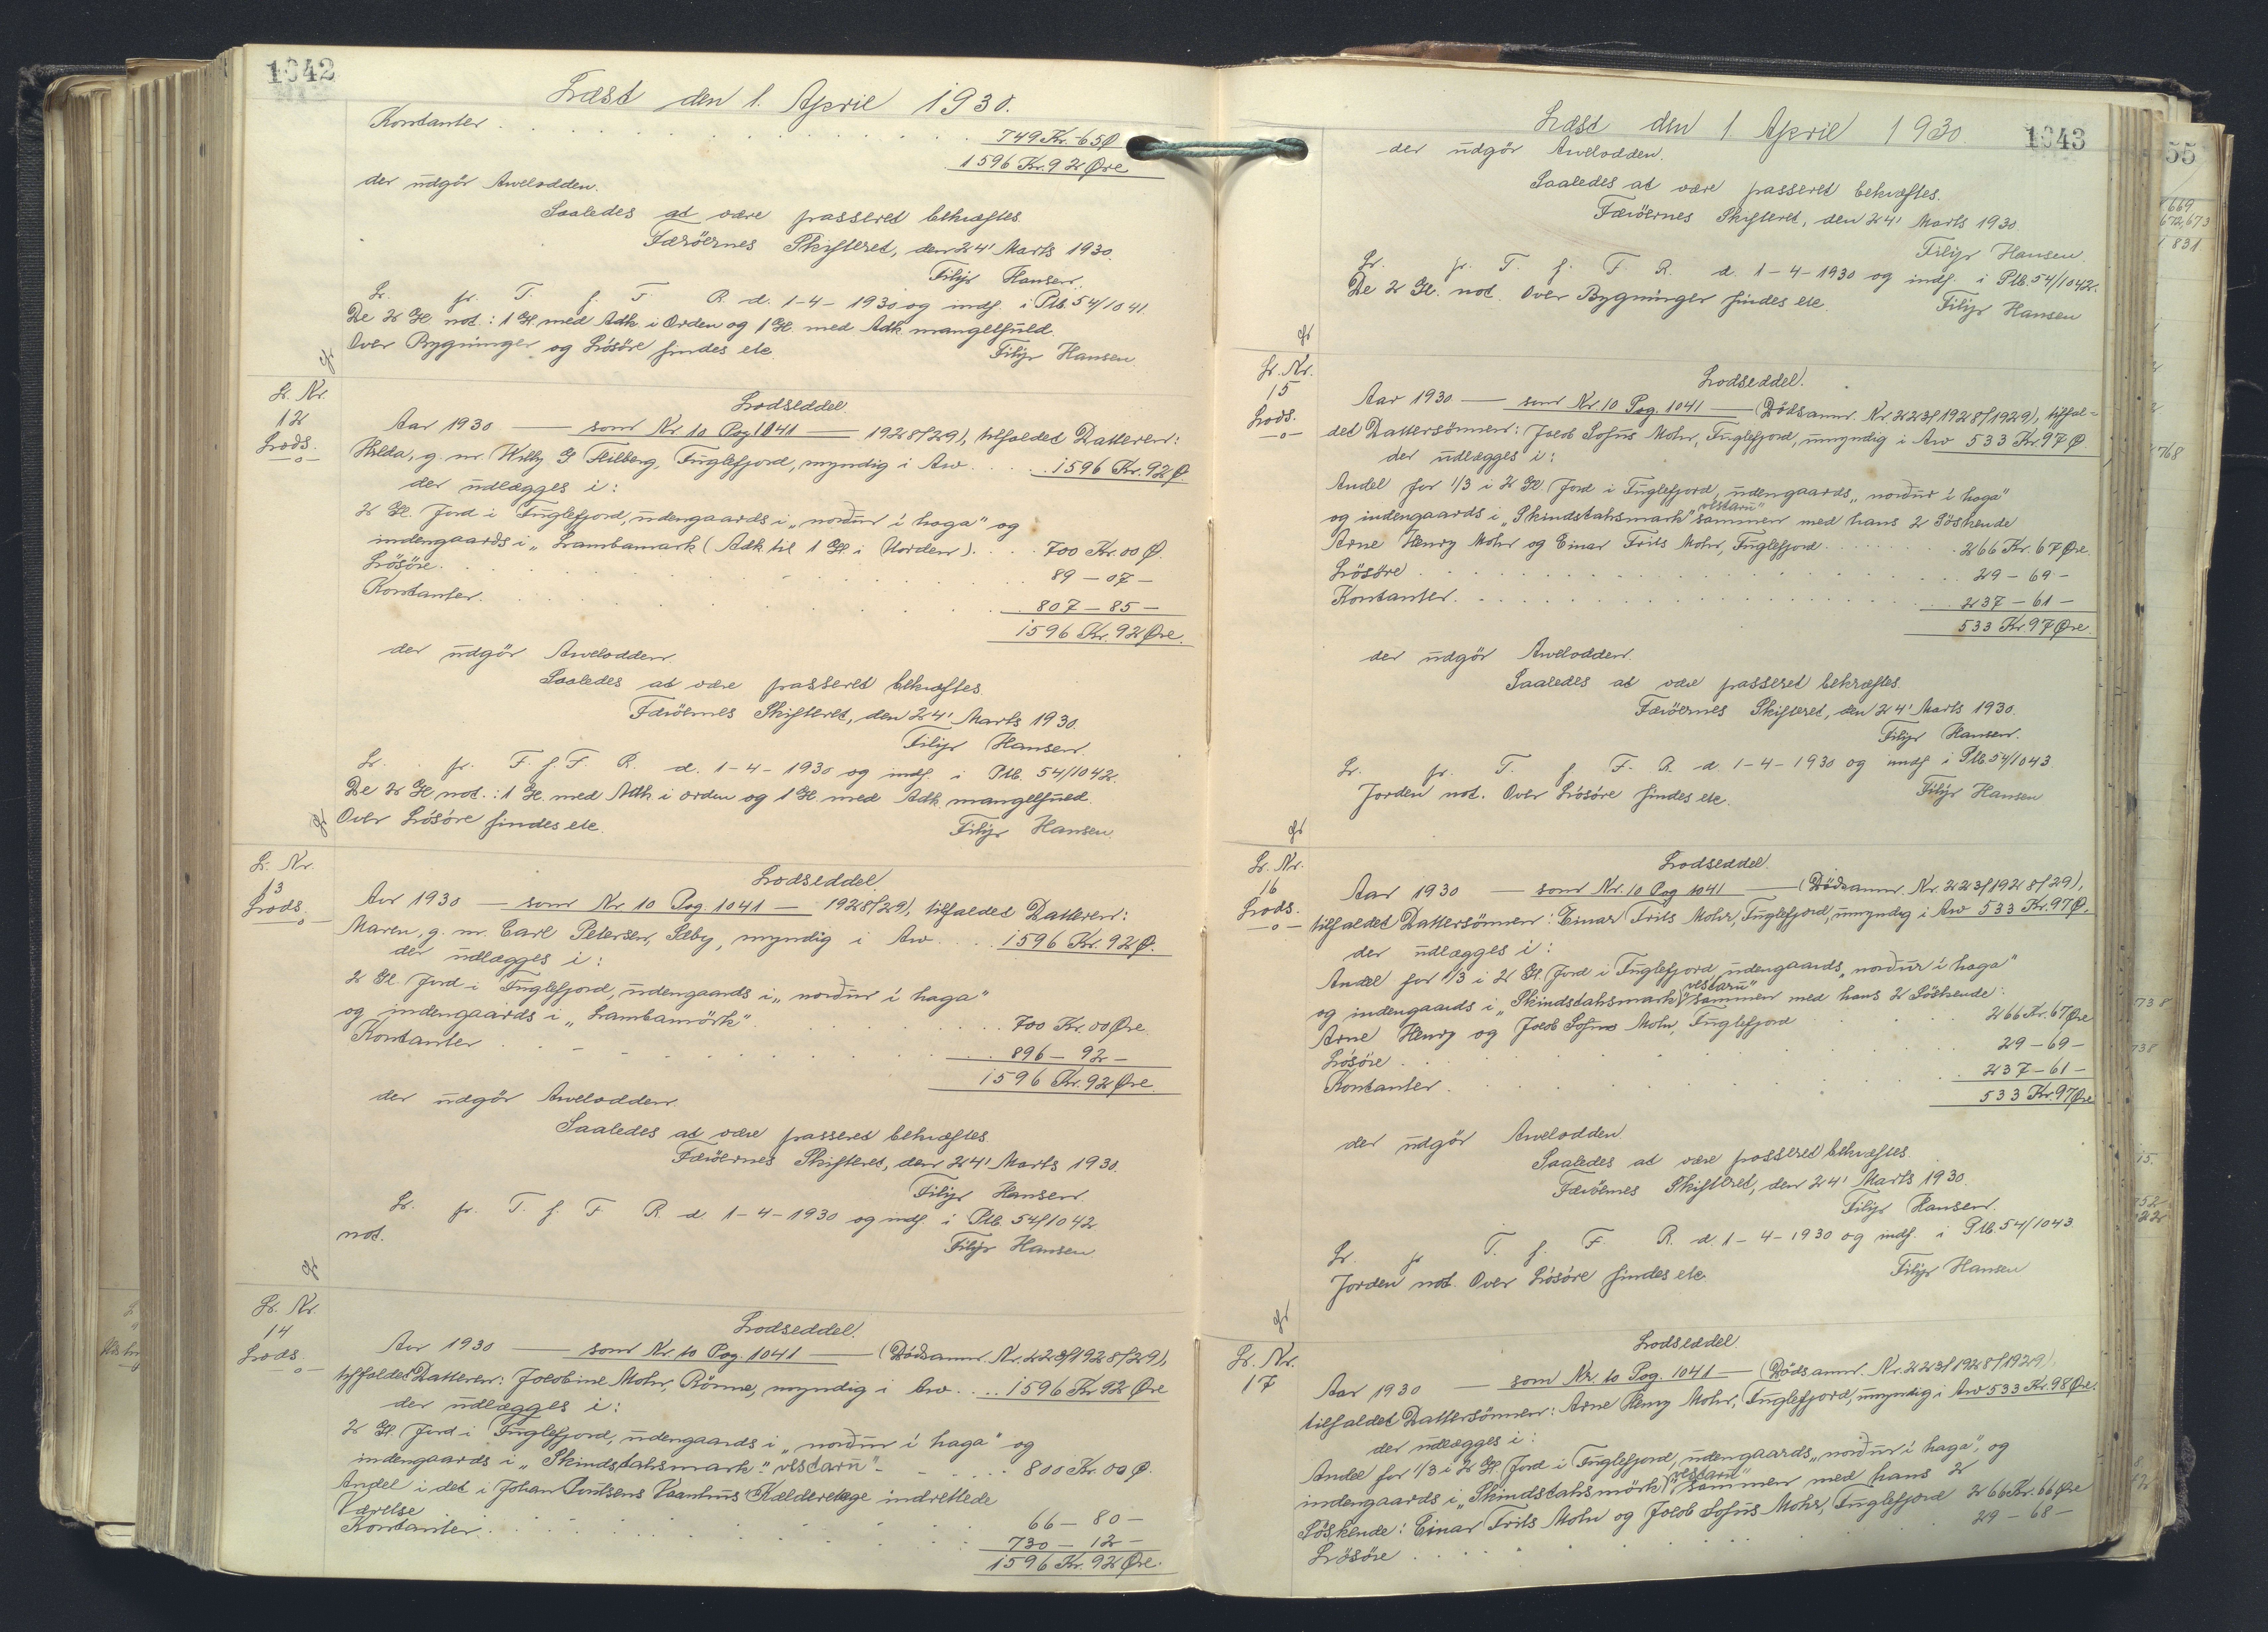 1042
Læst den 1. April 1930.
Kontanter . . . 749 Kr. 65 Ø
1596 Kr. 92 Øre
der udgør Arvelodden.
Saaledes at være passeret bekræftes.
Færöernes Skifteret, den 24' Marts 1930.
Filip Hansen.
L. fr. T. f. F. R. d. 1-4-1930 og indf. i Ptb. 54/1041.
De 2 Gl. not.: 1 Gl. med Adk. i Orden og 1 Gl. med Adk. mangelfuld.
Over Bygninger og Lösöre findes etc.
Filip Hansen.
L. Nr.
12
Lods.
Lodseddel.
Aar 1930 — som Nr. 10 Pag 1041 — 1928/29), tilfaldet Datteren:
Hilda, g. m. Willy G. Heilberg, Fuglefjord, myndig i Arv . . . 1596 Kr. 92 Ø.
der udlægges i:
2 Gl. Jord i Fuglefjord, udengaards i „norður í haga" og
indengaards i „Lambamark (Adk. til 1 Gl. i Uorden) . . . 700 Kr. 00 Ø.
Lösöre . . . 89 - 07 -
Kontanter . . . 807 - 85 -
1596 Kr. 92 Øre.
der udgör Arvelodden.
Saaledes at være passeret bekræftes.
Færöernes Skifteret, den 24' Marts 1930.
Filip Hansen.
L. fr. T. f. F. R. d. 1-4-1930 og indf. i Ptb. 54/1042.
De 2 Gl. not.: 1 Gl. med Adk. i orden og 1 Gl. med Adk. mangelfuld.
Over Lösöre findes etc.
Filip Hansen.
L. Nr.
13
Lods.
Lodseddel.
Aar 1930 — som Nr. 10 Pag. 1041 — 1928/29), tilfaldet Datteren:
Maren, g. m. Carl Petersen, Selby, myndig i Arv . . . 1596 Kr. 92 Ø.
der udlægges i:
2 Gl. Jord i Fuglefjord, udengaards i „norður í haga"
og indengaards i „Lambamörk" . . . 700 Kr. 00 Øre
Kontanter . . . 896 - 92 -
1596 Kr. 92 Øre.
der udgör Arvelodden.
Saaledes at være passeret bekræftes.
Færöernes Skifteret, den 24' Marts 1930.
Filip Hansen.
L. fr. T. f. F. R. d. 1-4-1930 og indf. i Ptb. 54/1042
not.
Filip Hansen
L. Nr.
14
Lods.
Lodseddel.
Aar 1930 — som Nr. 10 Pag. 1041 — (Dödsanm. Nr. 223/1928/29),
tilfaldet Datteren: Jacobine Mohr, Rönne, myndig i Arv . . . 1596 Kr. 92 Øre
der udlægges i:
2 Gl. Jord i Fuglefjord, udengaards i „norður í haga" og
indengaards i „Skindstahsmark" „vestaru" . . . 800 Kr. 00 Ø.
Andel i det i Johan Poulsens Vaanhus' Kælderetage indrettede
Værelse . . . 66 - 80 -
Kontanter . . . 730 - 12 -
1596 Kr. 92 Øre.
1043
Læst den 1 April 1930.
der udgör Arvelodden.
Saaledes at være passeret bekræftes.
Færöernes Skifteret, den 24' Marts 1930.
Filip Hansen.
L. fr. T. f. F. R. d. 1-4-1930 og indf. i Ptb. 54/1042.
De 2 Gl. not. Over Bygninger findes etc.
Filip Hansen
L. Nr.
15
Lods.
Lodseddel.
Aar 1930 — som Nr. 10 Pag. 1041 — (Dödsanm. Nr. 223/1928/1929), tilfal=
det Dattersönnen: Jacob Sofus Mohr, Fuglefjord, umyndig i Arv 533 Kr. 97 Ø
der udlægges i:
Andel for 1/3 i 2 Gl. Jord i Fuglefjord, udengaards „norður í haga"
og indengaards i „Skindstahsmark" „vestaru" sammen med hans 2 Söskende
Arne Henry Mohr og Einar Frits Mohr, Fuglefjord . . . 266 Kr. 67 Øre.
Lösöre . . . 29 - 69 -
Kontanter . . . 237 - 61 -
533 Kr. 97 Øre.
der udgör Arvelodden.
Saaledes at være passeret bekræftes.
Færöernes Skifteret, den 24' Marts 1930.
Filip Hansen.
L. fr. T. f. F. R. d. 1-4-1930 og indf. i Ptb. 54/1043
Jorden not. Over Lösöre findes etc.
Filip Hansen
L. Nr.
16
Lods.
Lodseddel.
Aar 1930 — som Nr. 10 Pag 1041 — (Dödsanm. Nr. 223/1928/29),
tilfaldet Dattersönnen: Einar Frits Mohr, Fuglefjord, umyndig i Arv 533 Kr. 97 Ø.
der udlægges i:
Andel for 1/3 i 2 Gl. Jord i Fuglefjord udengaards „norður í haga"
og indengaards i „Skindstahsmark" „vestaru" sammen med hans 2 Söskende:
Arne Henry og Jacob Sofus Mohr, Fuglefjord . . . 266 Kr. 67 Øre
Lösöre . . . 29 - 69 -
Kontanter . . . 237 - 61 -
533 Kr. 97 Øre
der udgör Arvelodden
Saaledes at være passeret bekræftes.
Færöernes Skifteret, den 24' Marts 1930.
Filip Hansen.
L. fr. T. f. F. R. d. 1-4-1930 og indf. i Ptb. 54/1043
Jorden not. Over Lösöre findes etc.
Filip Hansen
L. Nr.
17
Lodseddel.
Aar 1930 — som Nr. 10 Pag. 1041 — (Dödsanm. Nr. 223/1928/1929)
tilfaldet Dattersönnen: Arne Henry Mohr, Fuglefjord, umyndig i Arv 533 Kr. 98 Øre.
der udlægges i:
Andel for 1/3 i 2 Gl. Jord i Fuglefjord, udengaards „norður í haga", og
indengaards i „Skindstahsmörk" „vestaru" sammen med hans 2
Söskende: Einar Frits Mohr og Jacob Sofus Mohr, Fuglefjord 266 Kr. 66 Øre
Lösöre . . . 29 - 68 -
55
669
672,673
831
768
738
738
15.